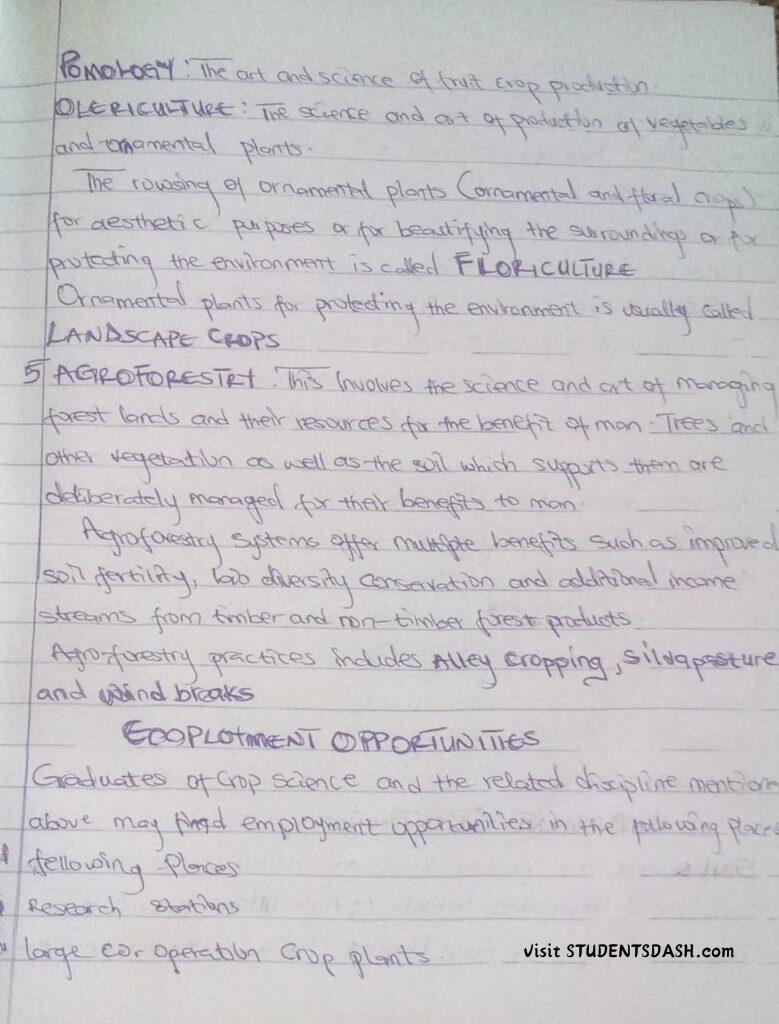 POMOLOGY: The art and science of fruit crop production.
OLERICULTURE: The science and art of production of vegetables
and ornamental plants.
The rowsing of ornamental plants (ornamental and floral crops)
for aesthetic purposes or for beautifying the surroundings or for
protecting the environment is called FLORICULTURE
Ornamental plants for protecting the environment is usually called
LANDSCAPE CROPS
5 AGROFORESTRY. This Involves the science and art of managing
forest lands and their resources for the benefit of man. Trees and
other vegetation as well as the soil which supports them are
deliberately managed for their benefits to man.
Agroforestry systems offer multiple benefits such as improved
soil fertility, bio diversity conservation and additional income
streams from timber and non-timber forest products.
Agro-forestry practices includes Alley cropping, silvapasture
and wind breaks
OPPORTUNITIES
Graduates of Crop science and the related discipline mentione
above may find employment opportunities in the following places
following Places
Research stations
large cor operation Crop plants.
visit STUDENTSDASH.com